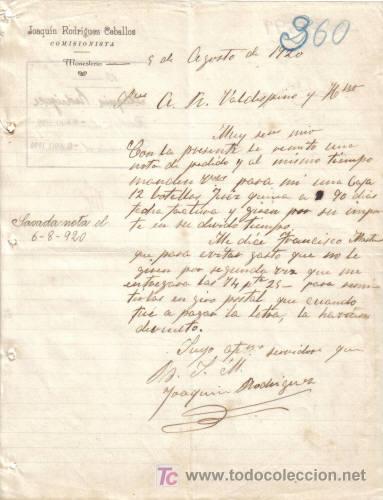 Joaquín Rodríguez Ceballos
COMISIONISTA
Monesterio
360
5 de Agosto de 1920
Sres A. R. Valdespino y Hno
Muy sres mio
Con la presente le remito una
nota de pedido y al mismo tiempo
manden Vdes para mi una Caja
12 botellas Jerez quina a 90 dias
fecha factura y giren por su impor
te en su devido tiempo.
Sacada nota el
6-8-920
Me dice Francisco
que para evitar gasto que no le
giren por segunda vez que me
entregara las 74 pts 25 para remi
tirlas en giro postal, que cuando
fué a pagar la letra, la havian
devuelto.
Suyo afmo servidor que
B. S. M.
Joaquin Rodriguez
TC
todocoleccion
www.todocoleccion.net